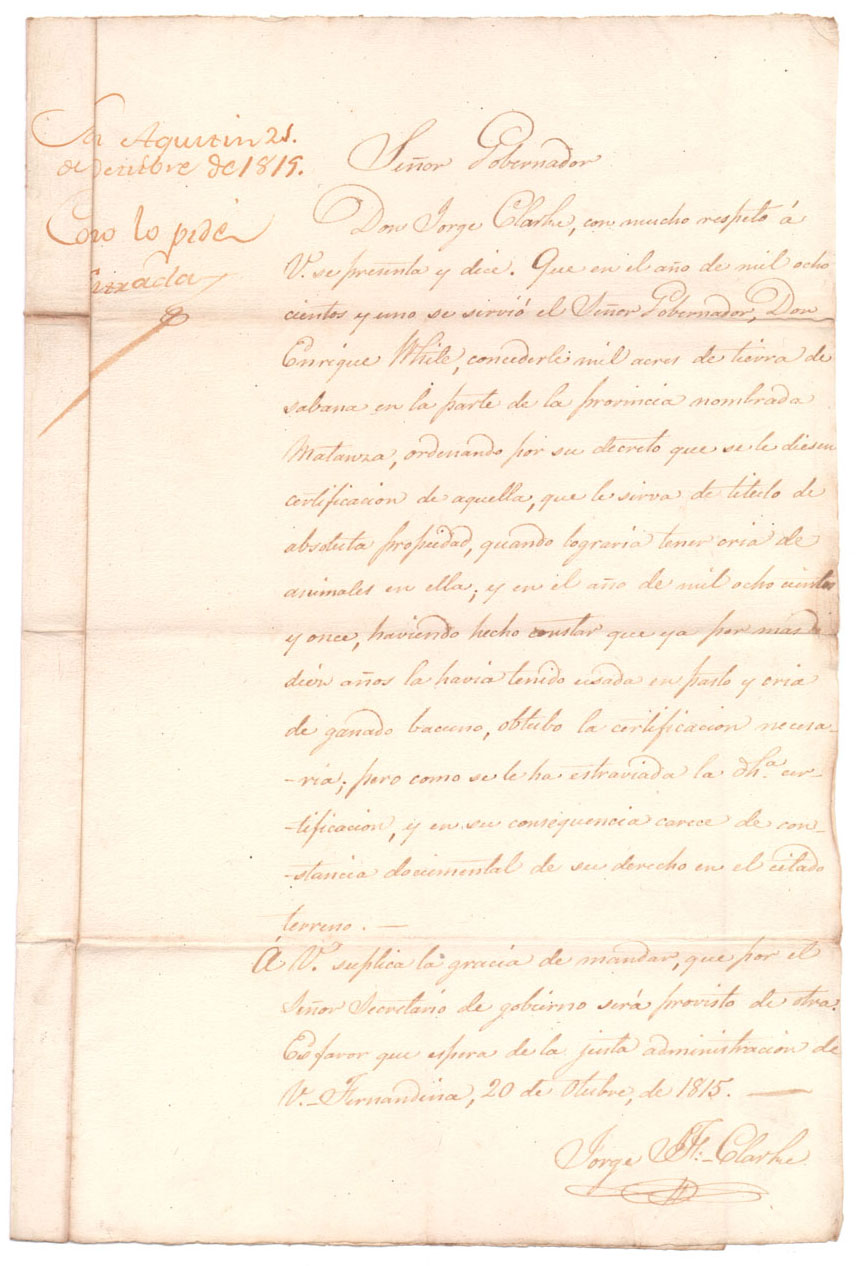 Sn Agustin 21.
de octubre de 1815.
Como lo pide
Estrada
Señor Gobernador
Don Jorge Clarke, con mucho respeto á
V. se presenta y dice. Que en el año de mil ocho
cientos y uno se sirvió el Señor Gobernador, Don
Enrique While, concederle mil acres de tierra de
sabana en la parte de la provincia nombrada
Matanza, ordenando por su decreto que se le diesen
certificacion de aquella, que le sirva de titulo de
absoluta propiedad, quando lograria tener cria de
animales en ella; y en el año de mil ocho cientos
y once, haviendo hecho constar que ya por mas de
diéz años la havia tenido usada en pasto y cria
de ganado bacuno, obtubo la certificacion necesa-
-ria; pero como se le ha estraviada la dha. cer-
-tificacion, y en su consequencia carece de con-
-stancia documental de su derecho en el citado
terreno. —
A V. suplica la gracia de mandar, que por el
Señor Secretario de gobierno será provisto de otra.
Es favor que espera de la justa administracion de
V. Fernandina, 20 de Otubre, de 1815. —
Jorge J. F. Clarke